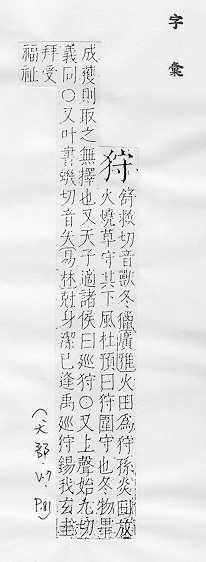 字彙
狩
舒救切音獸冬獵廣雅火田爲狩孫炎曰放
火燒草守其下風杜預曰狩圍守也冬物畢
成獲則取之無擇也又天子適諸侯曰廵狩〇又上聲始九切
義同〇又叶書幾切音矢易林尅身潔已逢禹廵狩錫我玄圭
拜受
福祉
(犬部 V.7 P.81)